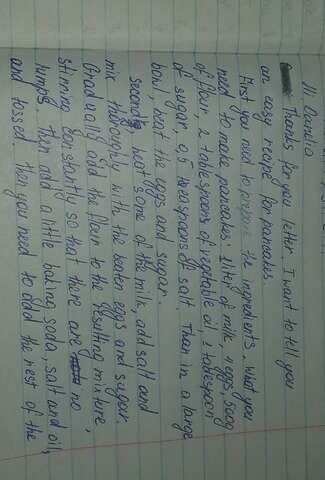 Hi Danila
Thanks for you letter. I want to tell you
an easy recipe for pancakes.
First you need to prepare the ingredients. What you
need to make pancakes: 1 liter of milk, 4 eggs, 500g
of flour 2 tablespoons of vegetable oil, 1 tablespoon
of sugar, 0,5 teaspoons of salt. Than in a large
bowl, beat the eggs and sugar.
Second, heat some of the milk, add salt and
mix thoroughly with the beaten eggs and sugar.
Gradually add the flour to the resulting mixture,
stirring constantly so that there are no
lumps, then add a little baking soda, salt and oil,
and tossed. Then you need to add the rest of the